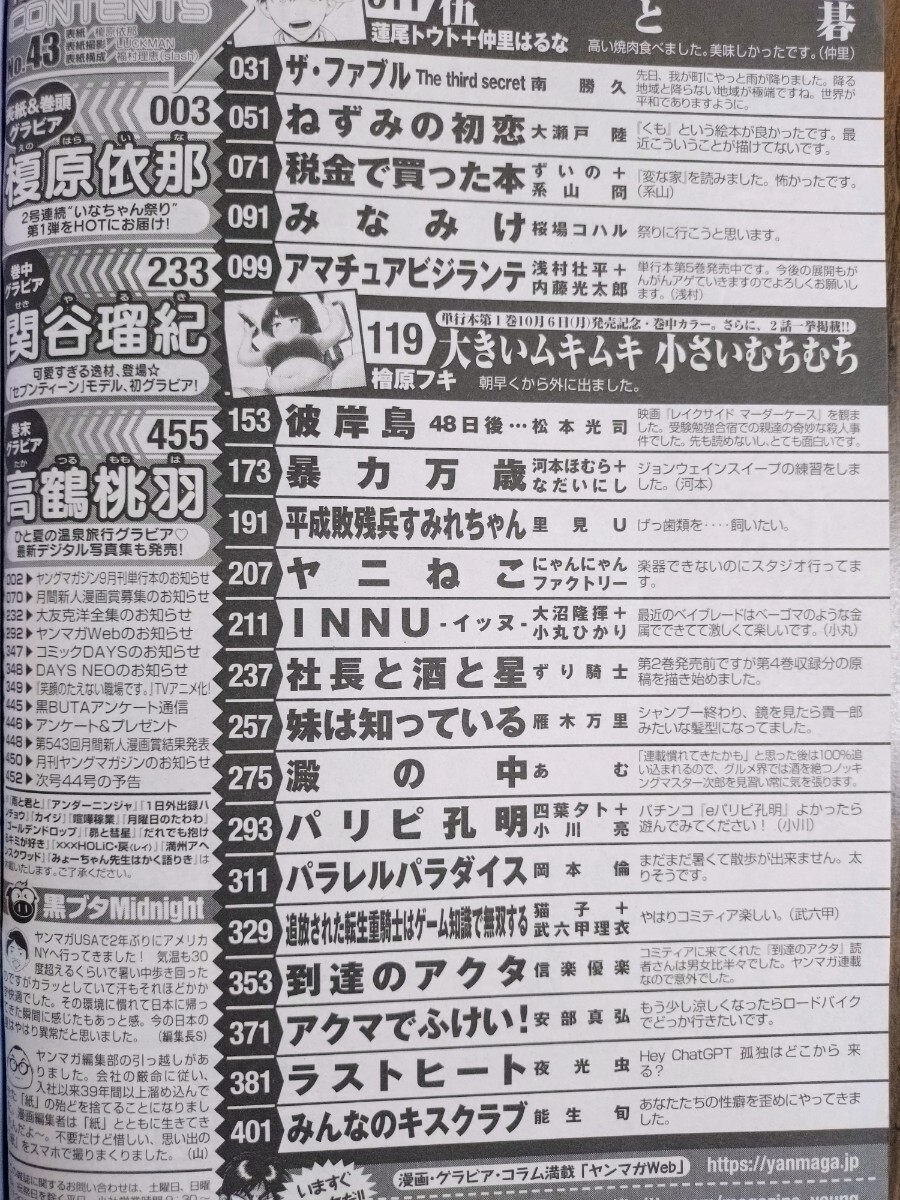 CONTENTS
No.43
表紙/榎原依那
表紙撮影/LUCKMAN
表紙構成/福村理恵(slash)
表紙&巻頭グラビア
003
えの はら い な
榎原依那
2号連続“いなちゃん祭り”
第1弾をHOTにお届け!
巻中グラビア
233
せき や る き
関谷瑠紀
可愛すぎる逸材、登場☆
「セブンティーン」モデル、初グラビア!
巻末グラビア
455
たか つる もも は
高鶴桃羽
ひと夏の温泉旅行グラビア♡
最新デジタル写真集も発売!
002▶ヤングマガジン9月刊単行本のお知らせ
070▶月間新人漫画賞募集のお知らせ
232▶大友克洋全集のお知らせ
292▶ヤンマガWebのお知らせ
347▶コミックDAYSのお知らせ
348▶DAYS NEOのお知らせ
349▶『笑顔のたえない職場です。』TVアニメ化!
445▶黒BUTAアンケート通信
446▶アンケート&プレゼント
448▶第543回月間新人漫画賞結果発表
450▶月刊ヤングマガジンのお知らせ
452▶次号44号の予告
『雨と君と』『アンダーニンジャ』『1日外出録ハ
ンチョウ』『カイジ』『喧嘩稼業』『月曜日のたわわ』
『ゴールデンドロップ』『昴と彗星』『だれでも抱け
るキミが好き』『×××HOLiC・戻(レイ)』『満州アヘ
ンスクワッド』『みょーちゃん先生はかく語りき』は
休載いたします。ご了承ください。
黒ブタMidnight
ヤンマガUSAで2年ぶりにアメリカ
NYへ行ってきました! 気温も30
度超えるくらいで暑い中歩き回った
ですがカラッとしていて汗もそれほどかか
快適でした。その環境に慣れて日本に帰っ
てきた瞬間に感じたもあっと感。今の日本の
はやはり異常だと思いました。 (編集長S)
ヤンマガ編集部の引っ越しがあ
りました。会社の厳命に従い、
入社以来39年間以上溜め込んで
きた「紙」の殆どを捨てることになりまし
た。漫画編集者は「紙」とともに生きてき
んだよ~。不要だけど惜しい、思い出の
紙」をスマホで撮りまくりました。(山)
の雑誌に関するお問い合わせは、土曜日、日曜
と 碁
蓮尾トウト+仲里はるな
高い焼肉食べました。美味しかったです。(仲里)
031 ザ・ファブル The third secret 南 勝久
先日、我が町にやっと雨が降りました。降る
地域と降らない地域が極端ですね。世界が
平和でありますように。
051 ねずみの初恋 大瀬戸 陸
『くも』という絵本が良かったです。最
近こういうことが描けてないです。
071 税金で買った本 ずいの+系山 冏
『変な家』を読みました。怖かったです。
(系山)
091 みなみけ 桜場コハル
祭りに行こうと思います。
099 アマチュアビジランテ 浅村壮平+内藤光太郎
単行本第5巻発売中です。今後の展開もが
んがんアゲていきますのでよろしくお願いし
ます。(浅村)
単行本第1巻10月6日(月)発売記念・巻中カラー。さらに、2話一挙掲載!!
119 大きいムキムキ 小さいむちむち
檜原フキ 朝早くから外に出ました。
153 彼岸島 48日後… 松本光司
映画『レイクサイド マーダーケース』を観ま
した。受験勉強合宿での親達の奇妙な殺人事
件でした。先も読めないし、とても面白いです。
173 暴力万歳 河本ほむら+なだいにし
ジョンウェインスイープの練習をしま
した。(河本)
191 平成敗残兵すみれちゃん 里見U
げっ歯類を‥‥飼いたい。
207 ヤニねこ にゃんにゃんファクトリー
楽器できないのにスタジオ行ってま
す。
211 INNU -イッヌ- 大沼隆揮+小丸ひかり
最近のベイブレードはベーゴマのような金
属でできてて激しくて楽しいです。(小丸)
237 社長と酒と星 ずり騎士
第2巻発売前ですが第4巻収録分の原
稿を描き始めました。
257 妹は知っている 雁木万里
シャンプー終わり、鏡を見たら貴一郎
みたいな髪型になってました。
275 澱の中 あむ
「連載慣れてきたかも」と思った後は100%追
い込まれるので、グルメ界では酒を絶つノッキ
ングマスター次郎を見習い常に気を張ります。
293 パリピ孔明 四葉夕ト+小川 亮
パチンコ「eパリピ孔明」よかったら
遊んでみてください!(小川)
311 パラレルパラダイス 岡本 倫
まだまだ暑くて散歩が出来ません。太
りそうです。
329 追放された転生重騎士はゲーム知識で無双する 猫子+武六甲理衣
やはりコミティア楽しい。(武六甲)
353 到達のアクタ 信楽優楽
コミティアに来てくれた『到達のアクタ』読
者さんは男女比半々でした。ヤンマガ連載
なので意外でした。
371 アクマでふけい! 安部真弘
もう少し涼しくなったらロードバイク
でどっか行きたいです。
381 ラストヒート 夜光虫
Hey ChatGPT 孤独はどこから 来
る?
401 みんなのキスクラブ 能生 旬
あなたたちの性癖を歪めにやってきま
した。
いますぐ
漫画・グラビア・コラム満載「ヤンマガWeb」 https://yanmaga.jp